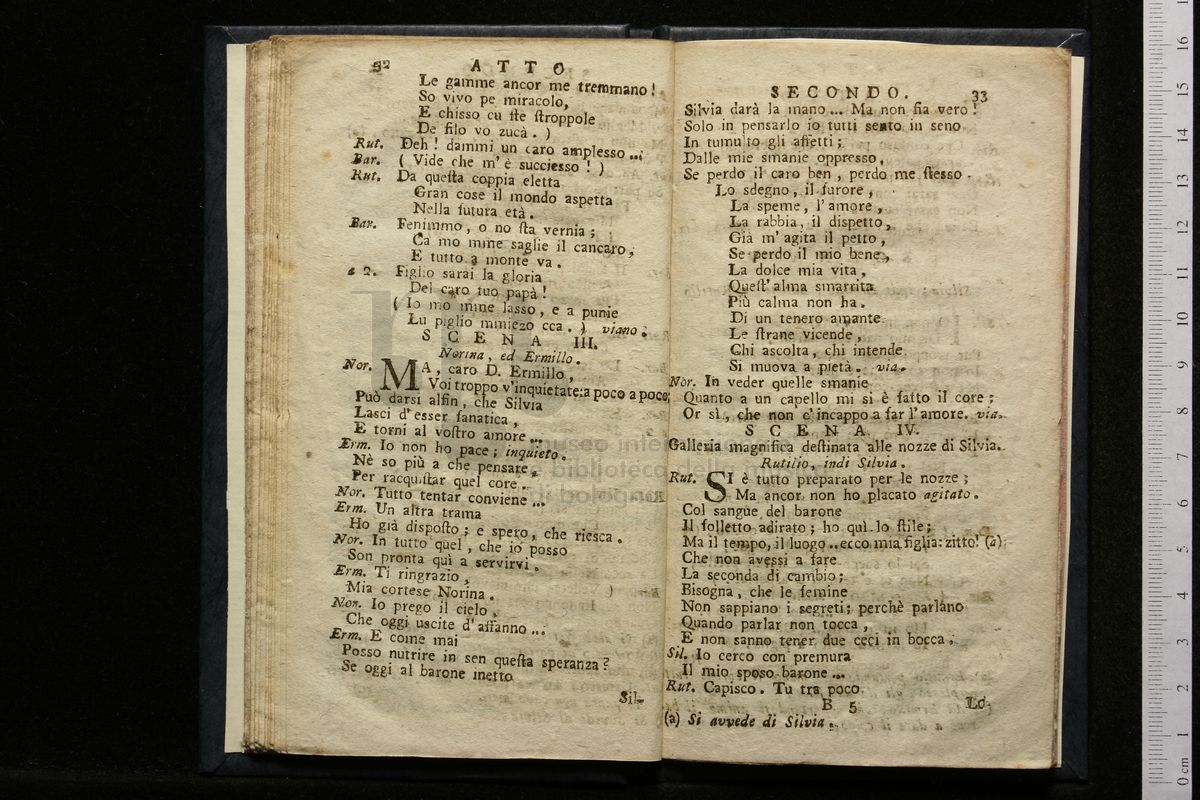 32 ATTO
Le gamme ancor me tremmano!
So vivo pe miracolo,
E chisso cu ſte ſtroppole
De filo vo zucà. )
Rut. Deh! dammi un caro amplesso ...
Bar. ( Vide che m'è succiesso! )
Rut. Da queſta coppia eletta
Gran cose il mondo aspetta
Nella futura età.
Bar. Fenimmo, o no ſta vernia;
Ca mo mme saglie il cancaro,
E tutto a monte va.
a 2. Figlio sarai la gloria
Del caro tuo papà!
( Io mo mme lasso, e a punie
Lu piglio mmiezo cca. ) viano.
SCENA III.
Norina, ed Ermillo.
Nor. MA, caro D. Ermillo,
Voi troppo v'inquietate: a poco a poco
Può darsi alfin, che Silvia
Lasci d'esser fanatica,
E torni al voſtro amore ...
Erm. Io non ho pace; inquieto.
Nè so più a che pensare,
Per racquiſtar quel core.
Nor. Tutto tentar conviene ...
Erm. Un altra trama
Ho già disposto; e spero, che riesca.
Nor. In tutto quel, che io posso
Son pronta quì a servirvi.
Erm. Ti ringrazio,
Mia cortese Norina.
Nor. Io prego il cielo,
Che oggi uscite d'affanno ...
Erm. E come mai
Posso nutrire in sen queſta speranza?
Se oggi al barone inetto
Sil-
SECONDO. 33
Silvia darà la mano ... Ma non fia vero!
Solo in pensarlo io tutti sento in seno
In tumulto gli affetti;
Dalle mie smanie oppresso,
Se perdo il caro ben, perdo me ſtesso.
Lo sdegno, il furore,
La speme, l'amore,
La rabbia, il dispetto,
Già m'agita il petto,
Se perdo il mio bene,
La dolce mia vita,
Queſt'alma smarrita
Più calma non ha.
Di un tenero amante
Le ſtrane vicende,
Chi ascolta, chi intende
Si muova a pietà. via.
Nor. In veder quelle smanie
Quanto a un capello mi si è fatto il core;
Or sì, che non c'incappo a far l'amore. via.
SCENA IV.
Galleria magnifica deſtinata alle nozze di Silvia.
Rutilio, indi Silvia.
Rut. SI è tutto preparato per le nozze;
Ma ancor non ho placato agitato.
Col sangue del barone
Il folletto adirato; ho quì lo ſtile;
Ma il tempo, il luogo .. ecco mia figlia: zitto! (a)
Che non avessi a fare
La seconda di cambio;
Bisogna, che le femine
Non sappiano i segreti; perchè parlano
Quando parlar non tocca,
E non sanno tener due ceci in bocca.
Sil. Io cerco con premura
Il mio sposo barone ...
Rut. Capisco. Tu tra poco
B 5 Lo
(a) Si avvede di Silvia.
museo internazionale
e biblioteca della musica
di bologna
0 cm 1 2 3 4 5 6 7 8 9 10 11 12 13 14 15 16